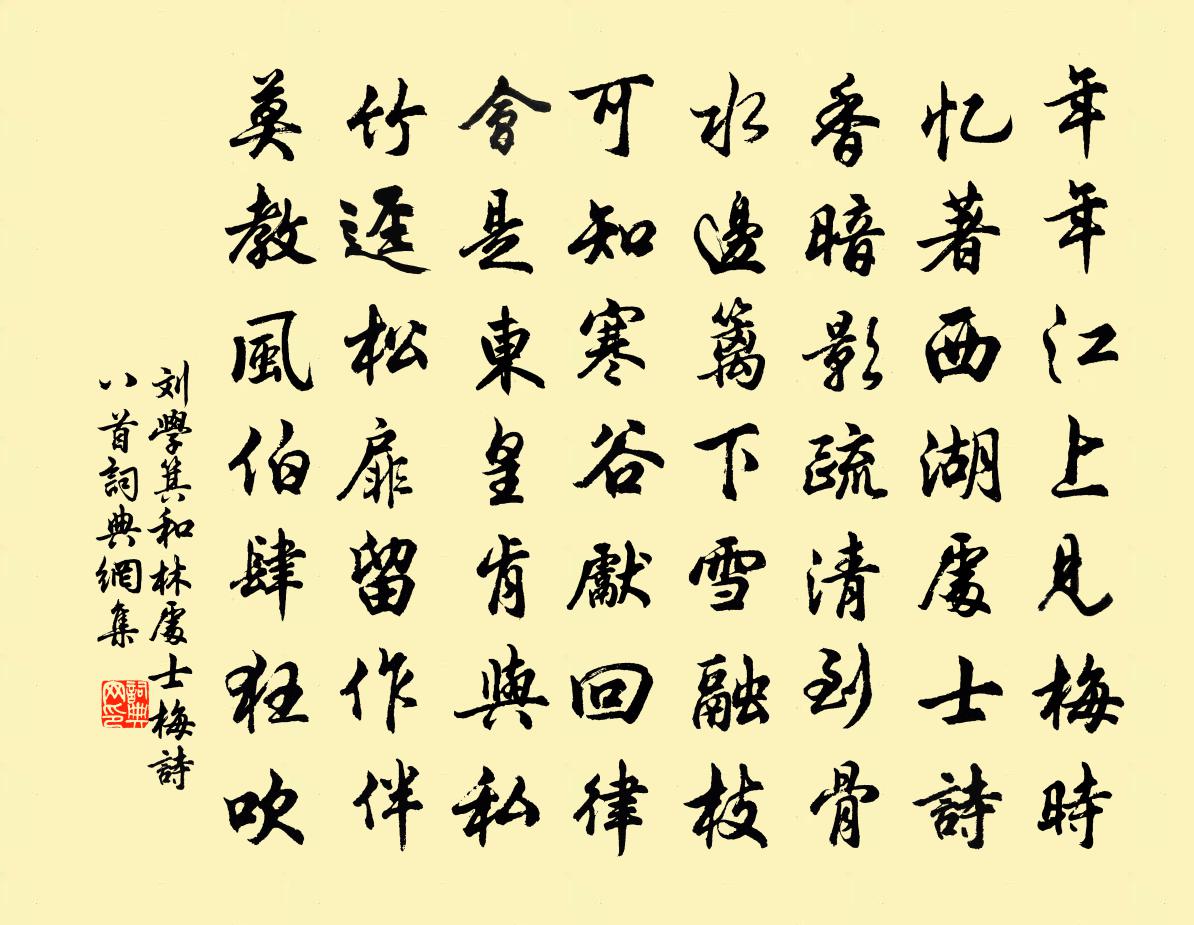 年年江上見梅時
忆著西湖處士詩
香暗影疏清到骨
水邊籬下雪融枝
可知寒谷獻回律
會是東皇肯與私
竹逕松扉留作伴
莫教風伯肆狂吹
刘學箕和林處士梅詩
八首詞典網集
詞典
网印